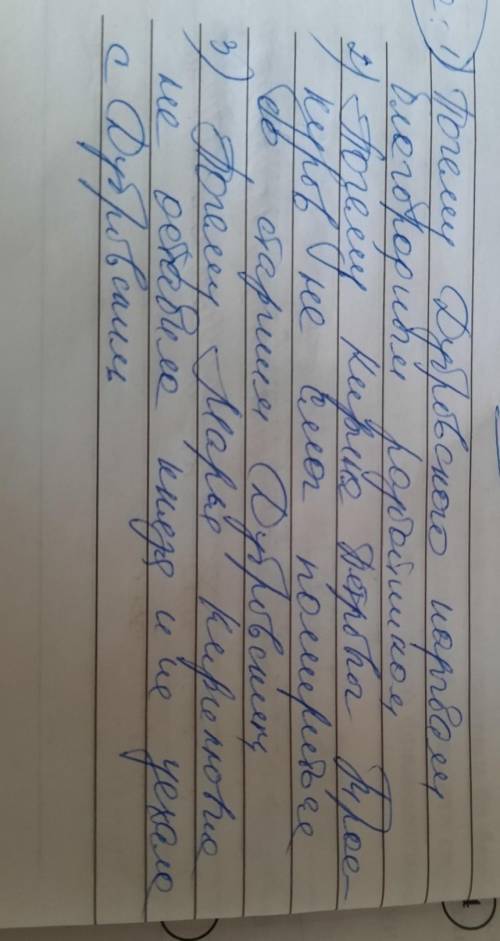 1) Почему Дубровского назвали
благородным разбойником
2) Почему Кирила Петрович Трое-
куров не смог помириться
со старшим Дубровским
3) Почему Марья Кириловна
не оставила князя и не уехала
с Дубровским